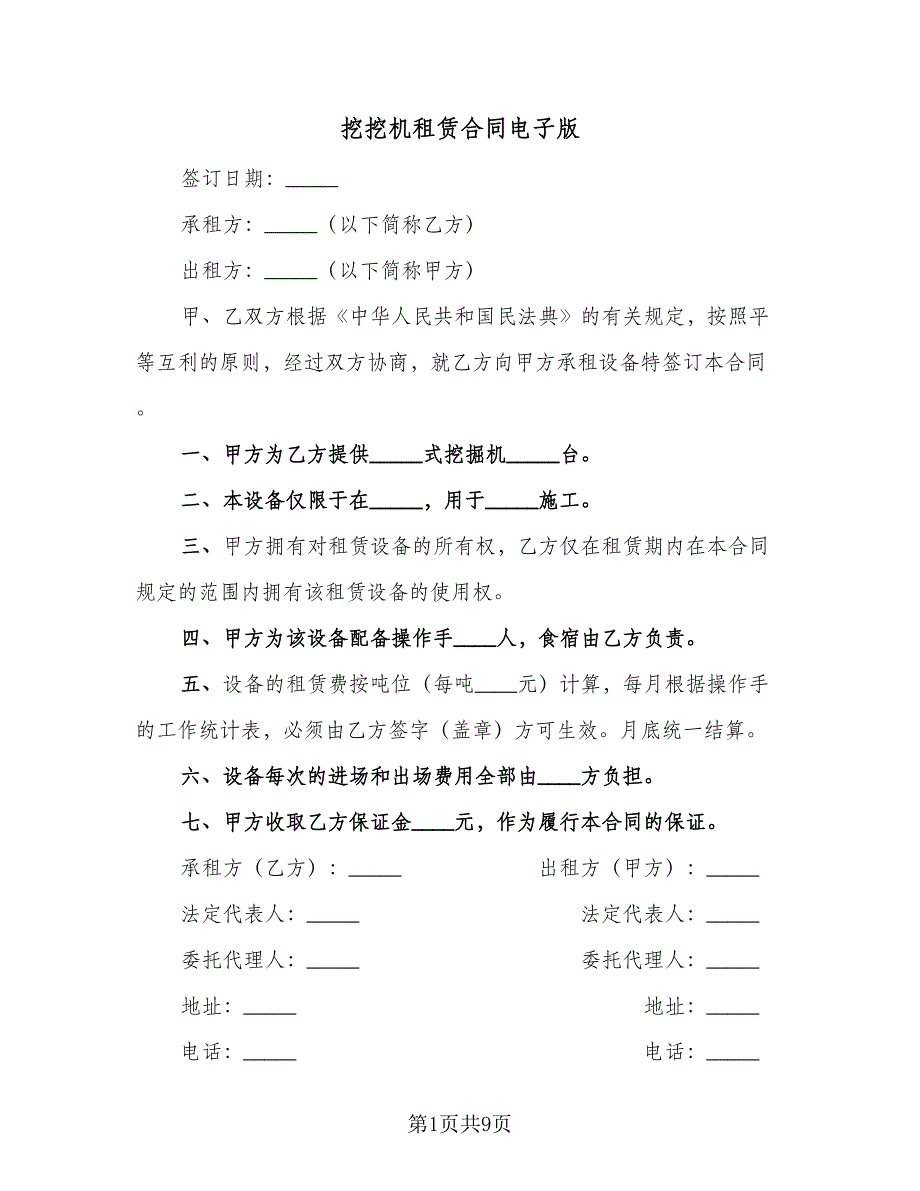 挖挖机租赁合同电子版
签订日期：_____
承租方：_____（以下简称乙方）
出租方：_____（以下简称甲方）
甲、乙双方根据《中华人民共和国民法典》的有关规定，按照平
等互利的原则，经过双方协商，就乙方向甲方承租设备特签订本合同
。
一、甲方为乙方提供_____式挖掘机_____台。
二、本设备仅限于在_____，用于_____施工。
三、甲方拥有对租赁设备的所有权，乙方仅在租赁期内在本合同
规定的范围内拥有该租赁设备的使用权。
四、甲方为该设备配备操作手____人，食宿由乙方负责。
五、设备的租赁费按吨位（每吨____元）计算，每月根据操作手
的工作统计表，必须由乙方签字（盖章）方可生效。月底统一结算。
六、设备每次的进场和出场费用全部由____方负担。
七、甲方收取乙方保证金____元，作为履行本合同的保证。
承租方（乙方）：_____ 出租方（甲方）：_____
法定代表人：_____ 法定代表人：_____
委托代理人：_____ 委托代理人：_____
地址：_____ 地址：_____
电话：_____ 电话：_____
第1页共9页